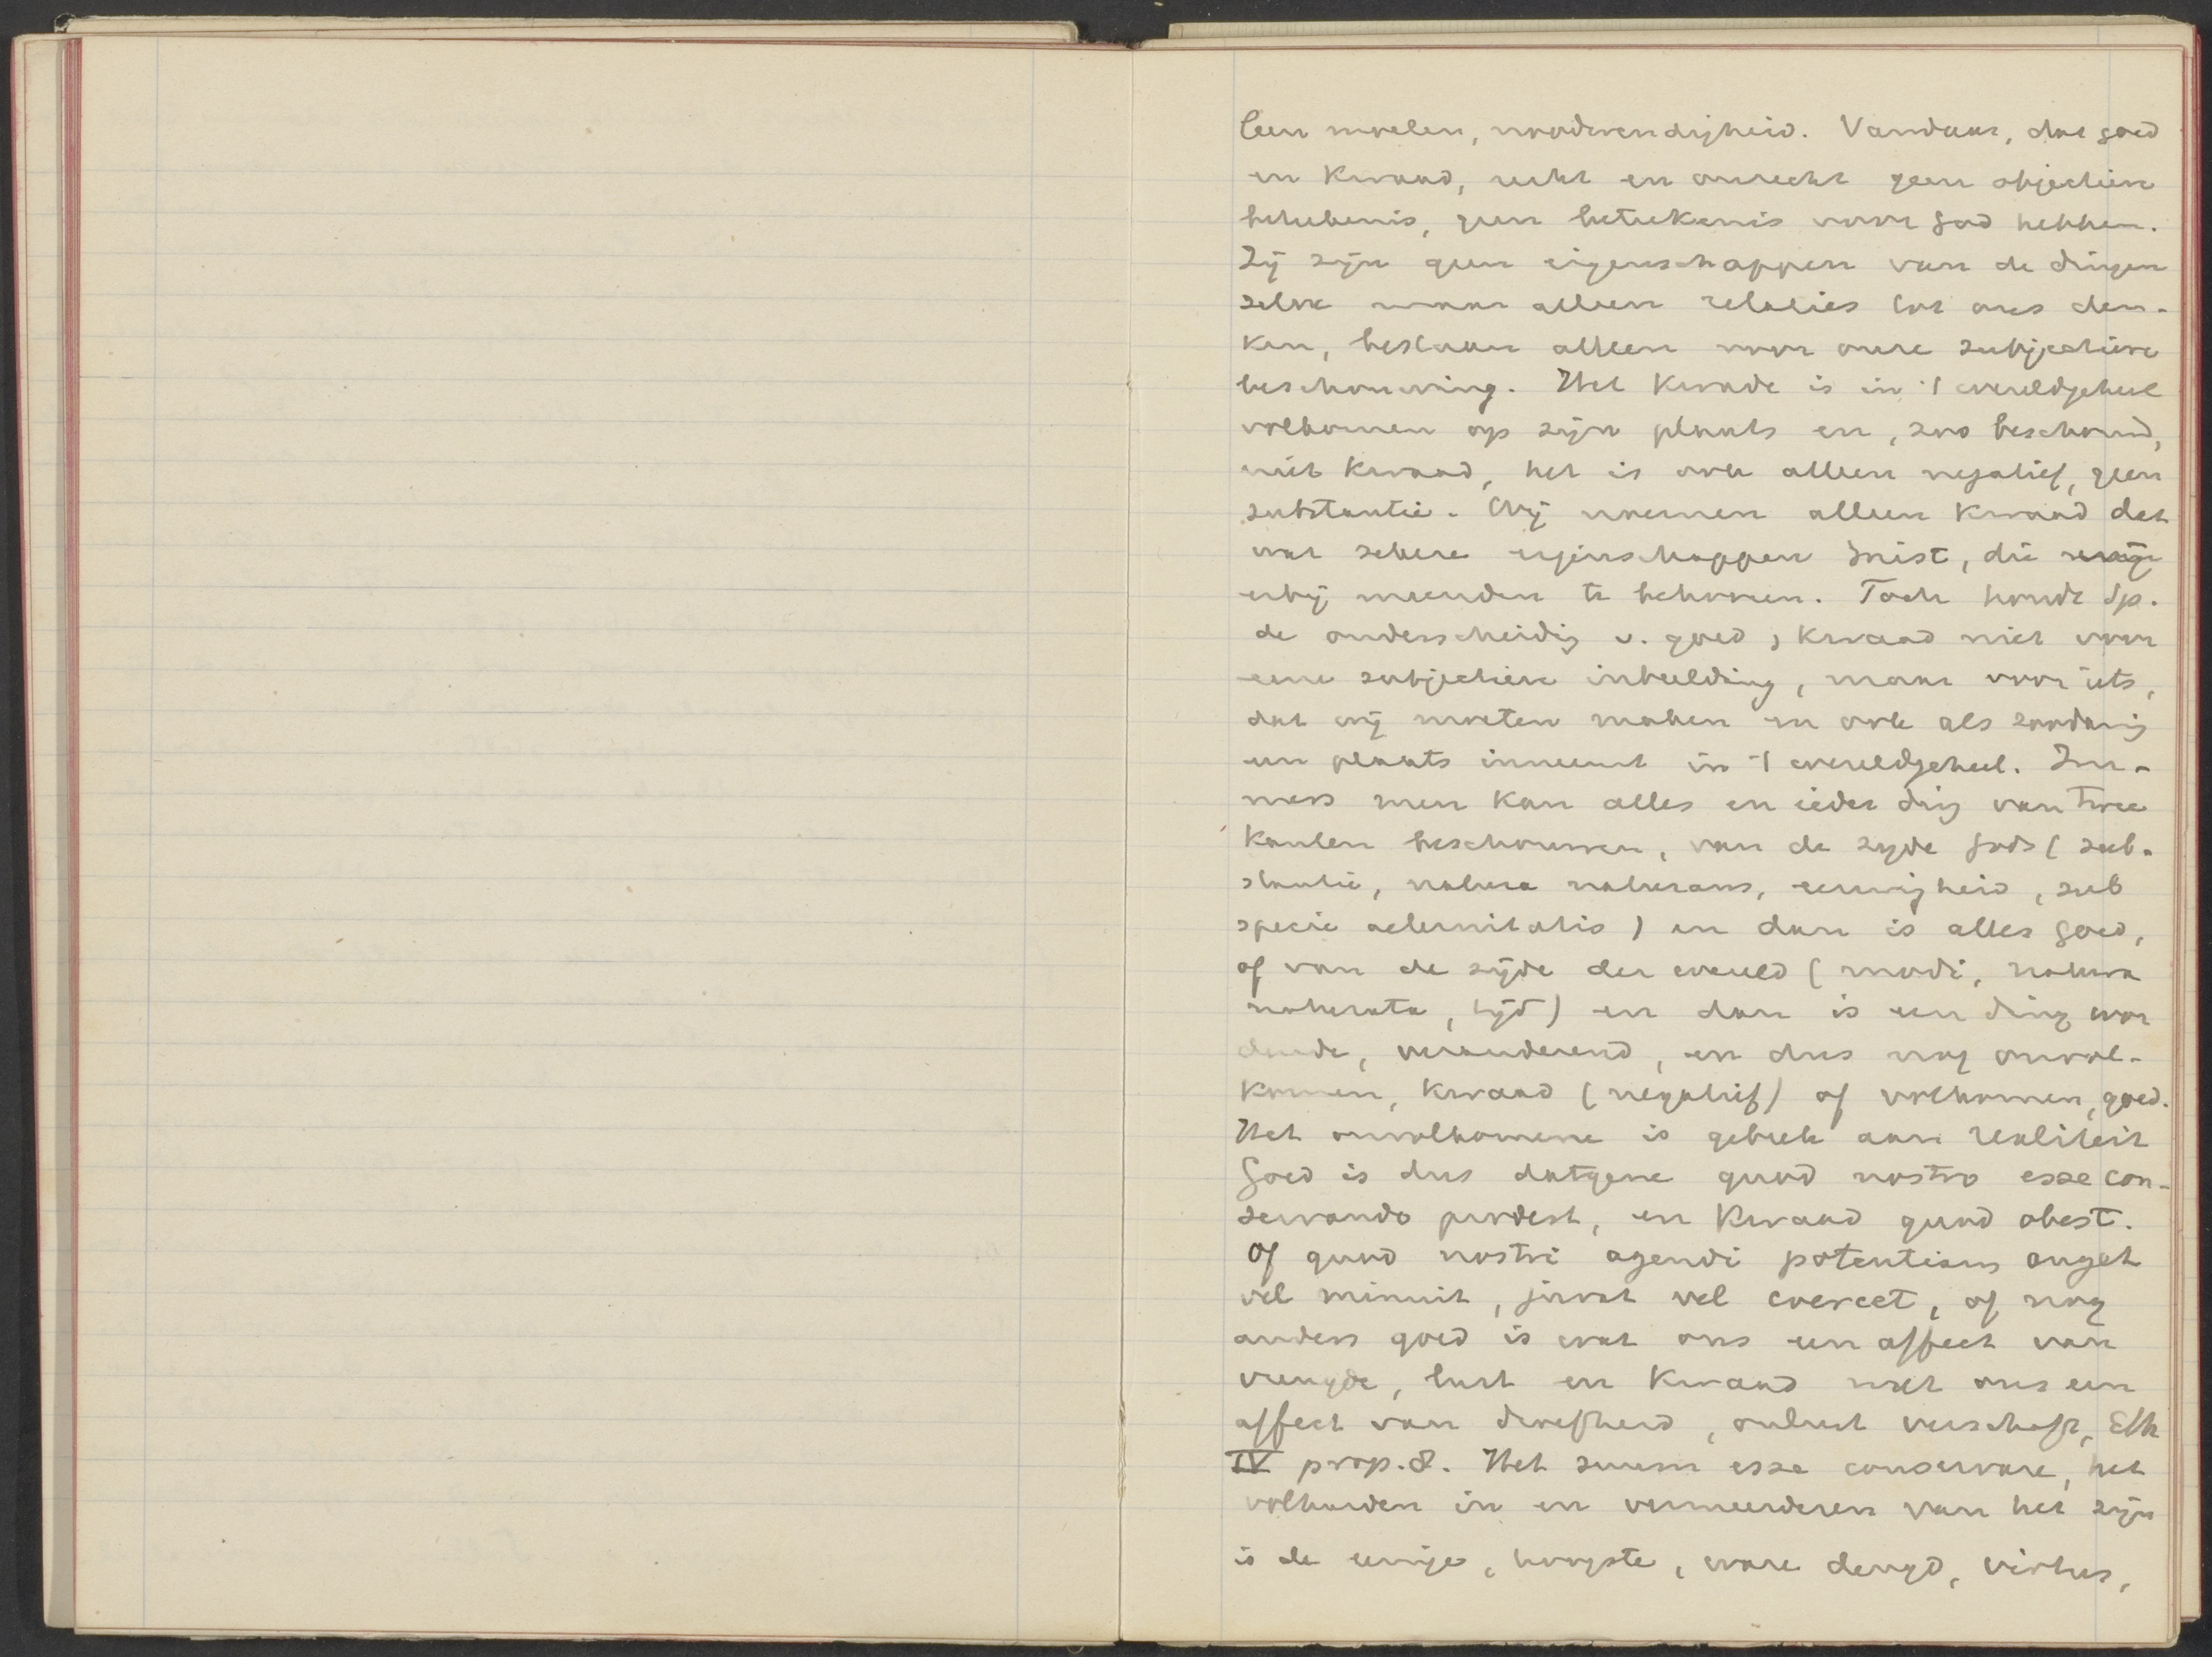 leen moeten, noodwendigheid. Vandaar, dat goed
en kwaad, recht en onrecht geen objectieve
beteekenis, geen betekenis voor God hebben.
Zij zijn geen eigenschappen van de dingen
zelve maar alleen relaties tot ons den-
ken, bestaan alleen voor onze subjectieve
beschouwing. Het kwade is in 't wereldgeheel
volkomen op zijn plaats en, zoo beschouwd,
niet kwaad, het is ook alleen negatief, geen
substantie. Wij noemen alleen kwaad dat
wat zekere eigenschappen mist, die
wij meenden te behooren. Toch houdt Sp.
de onderscheidig v. goed, kwaad niet voor
eene subjectieve inbeelding, maar voor iets,
dat wij moeten maken en ook als zoodanig
een plaats inneemt in 't wereldgeheel. Im-
mers men kan alles en ieder ding van twee
kanten beschouwen, van de zijde Gods (sub-
stantie, natura naturans, eeuwigheid, sub
specie aeternitatis) en dan is alles goed,
of van de zijde der wereld (modi, natura
naturata, tijd) en dan is een ding wor
dende, veranderend, en dus nog onvol-
komen, kwaad (negatief) of volkomen, goed.
Het onvolkomene is gebrek aan realiteit
Goed is dus datgene quod nostro esse con-
servando prodest, en kwaad quod obest.
Of quod nostri agendi potentiam auget
vel minuit, juvat vel coercet, of nog
anders goed is wat ons een affect van
vreugde, lust en kwaad wat ons een
affect van droefheid, onlust verschaft, Eth
IV prop. 8. Het suum esse conservare, het
volharden in en vermeerderen van het zijn
is de eenige, hoogste, ware deugd, virtus,